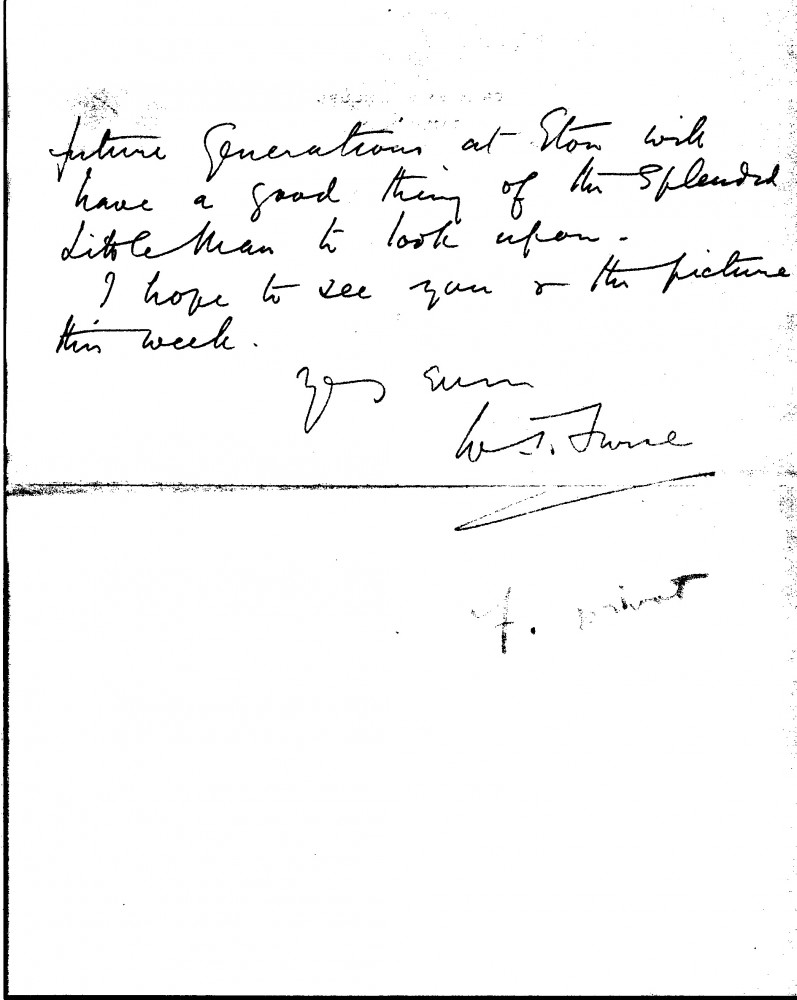 future Generations at Eton will
have a good thing of the Splendid
Little Man to look upon.
I hope to see you & the picture
this week.
Yrs Ever
W. T. Furse